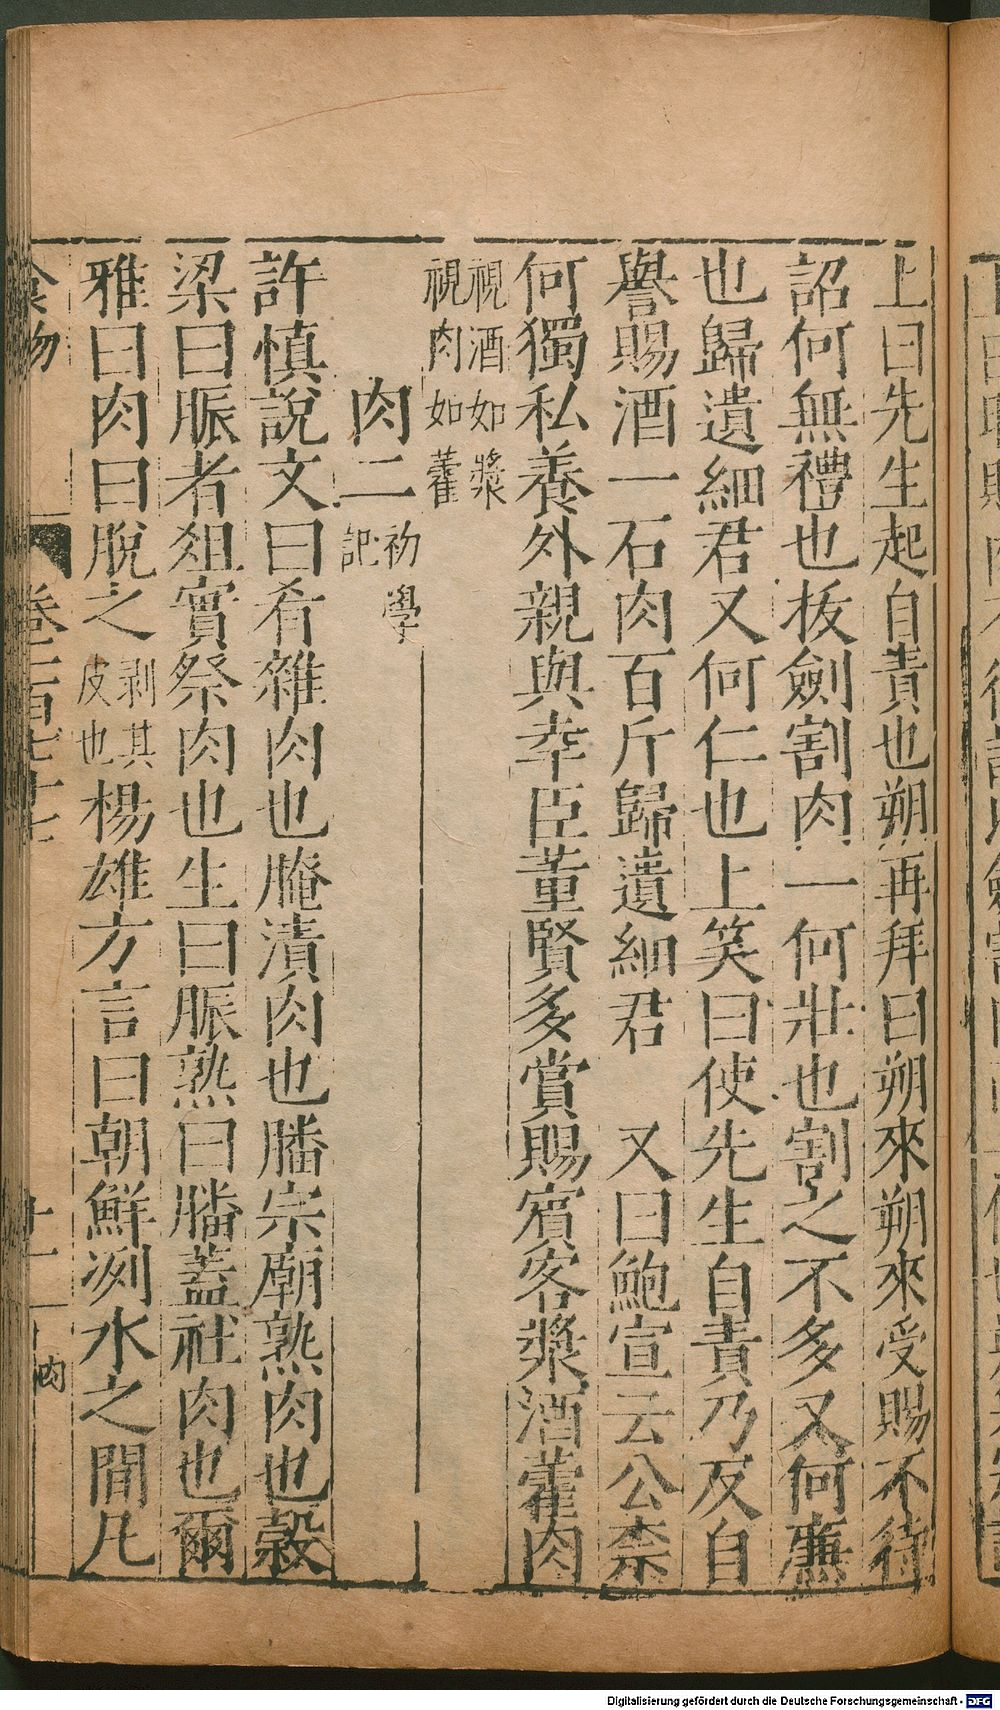 上曰先生起自責也朔再拜曰朔來朔來受賜不待
詔何無禮也拔劍割肉一何壯也割之不多又何廉
也歸遺細君又何仁也上笑曰使先生自責乃反自
譽賜酒一石肉百斤歸遺細君 又曰鮑宣云公柰
何獨私養外親與幸臣董賢多賞賜賓客漿酒藿肉
視酒如漿
視肉如藿
肉二
初學
記
許慎說文曰肴雜肉也腌漬肉也膰宗廟熟肉也穀
梁曰脤者俎實祭肉也生曰脤熟曰膰蓋社肉也爾
雅曰肉曰脫之
剥其
皮也
楊雄方言曰朝鮮洌水之間凡
食物
卷二百七十七
十一
肉
Digitalisierung gefördert durch die Deutsche Forschungsgemeinschaft - DFG